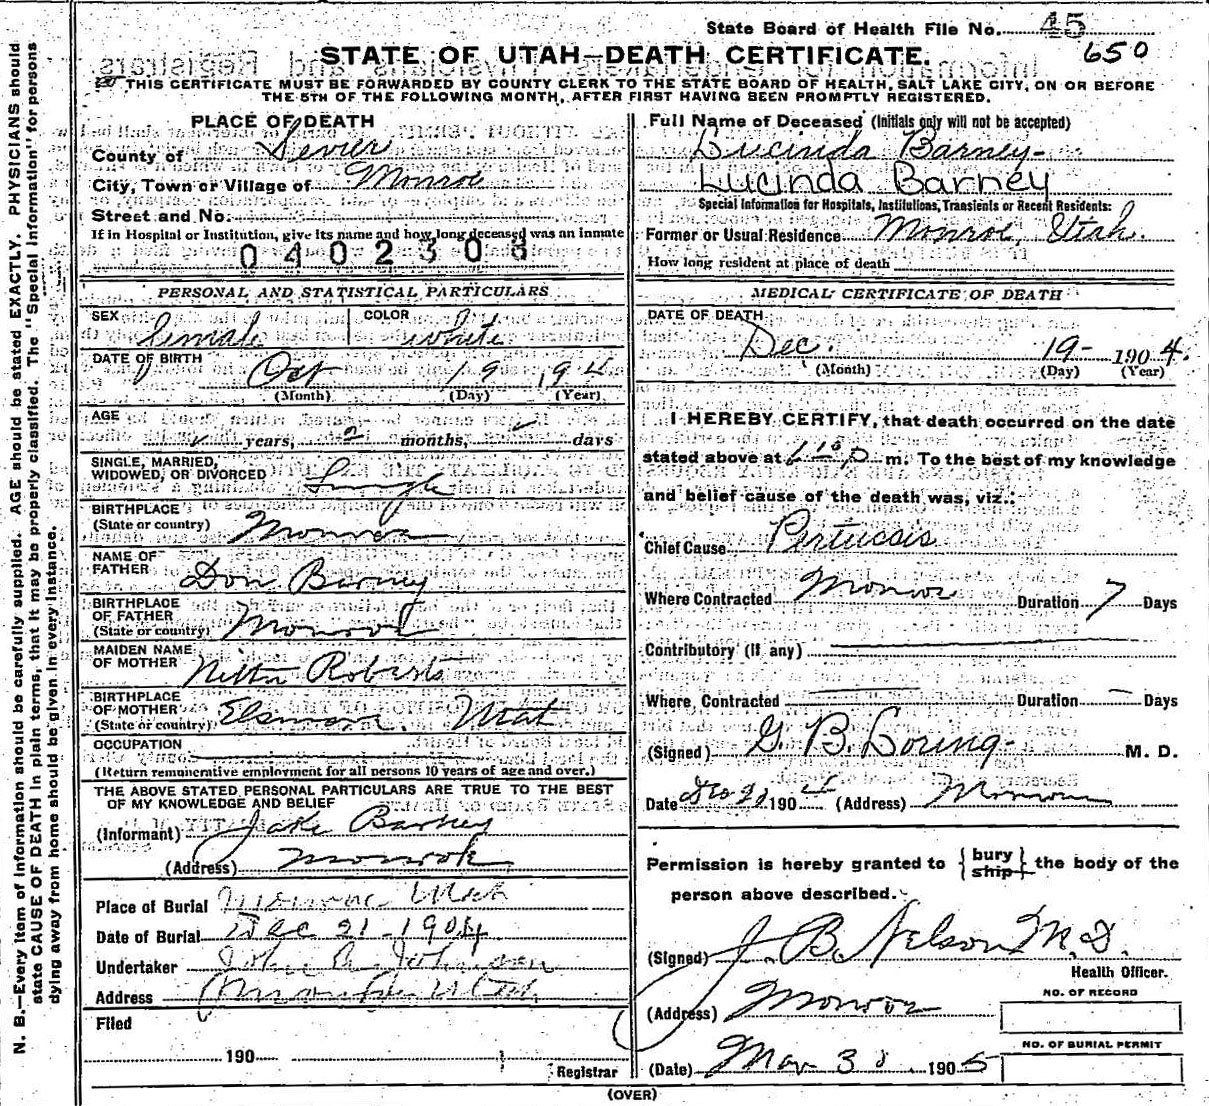 State Board of Health File No. 45
650
STATE OF UTAH—DEATH CERTIFICATE.
THIS CERTIFICATE MUST BE FORWARDED BY COUNTY CLERK TO THE STATE BOARD OF HEALTH, SALT LAKE CITY, ON OR BEFORE
THE 5TH OF THE FOLLOWING MONTH, AFTER FIRST HAVING BEEN PROMPTLY REGISTERED.
N. B.—Every item of information should be carefully supplied. AGE should be stated EXACTLY. PHYSICIANS should
state CAUSE OF DEATH in plain terms, that it may be properly classified. The "Special Information" for persons
dying away from home should be given in every instance.
PLACE OF DEATH
County of Sevier
City, Town or Village of Monroe
Street and No.
If in Hospital or Institution, give its name and how long deceased was an inmate
0402308
PERSONAL AND STATISTICAL PARTICULARS
SEX COLOR
female white
DATE OF BIRTH
Oct 19 1904
(Month) (Day) (Year)
AGE
years, 2 months, days
SINGLE, MARRIED,
WIDOWED, OR DIVORCED Single
BIRTHPLACE
(State or country) Monroe
NAME OF
FATHER Don Barney
BIRTHPLACE
OF FATHER
(State or country) Monroe
MAIDEN NAME
OF MOTHER Roberts
BIRTHPLACE
OF MOTHER
(State or country)
OCCUPATION
(Return remunerative employment for all persons 10 years of age and over.)
THE ABOVE STATED PERSONAL PARTICULARS ARE TRUE TO THE BEST
OF MY KNOWLEDGE AND BELIEF
(Informant) Jake Barney
(Address) Monroe
Place of Burial Monroe Utah
Date of Burial Dec 21 - 1904
Undertaker John Johnson
Address Utah
Filed
190
Registrar
Full Name of Deceased (Initials only will not be accepted)
Lucinda Barney
Lucinda Barney
Special Information for Hospitals, Institutions, Transients or Recent Residents:
Former or Usual Residence Monroe, Utah.
How long resident at place of death
MEDICAL CERTIFICATE OF DEATH
DATE OF DEATH
Dec. 19 - 1904.
(Month) (Day) (Year)
I HEREBY CERTIFY, that death occurred on the date
stated above at m. To the best of my knowledge
and belief cause of the death was, viz.:
Chief Cause Pertussis
Where Contracted Monroe Duration 7 Days
Contributory (if any)
Where Contracted Duration — Days
(Signed) G. B. Loring M. D.
Date Dec 21 1904 (Address) Monroe
Permission is hereby granted to { bury ship } the body of the
person above described.
(Signed) J. B. Nelson M.D.
Health Officer.
(Address) Monroe
NO. OF RECORD
NO. OF BURIAL PERMIT
(Date) Mar 1905
(OVER)